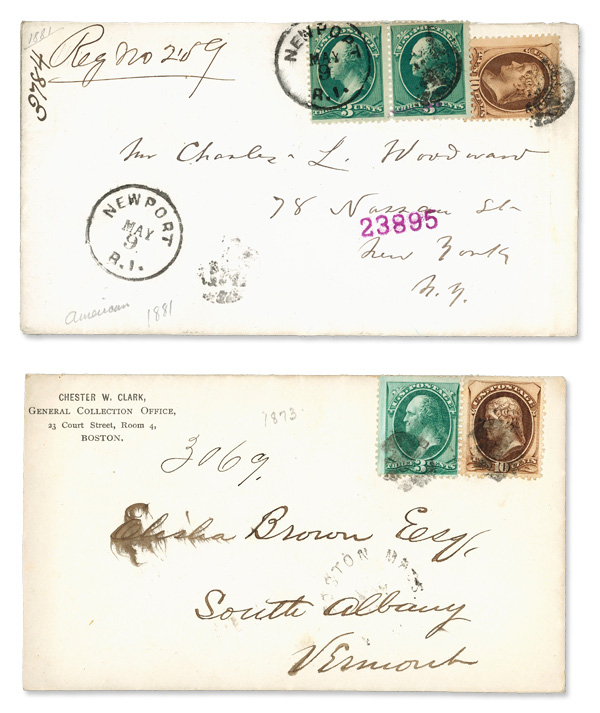 1881
Reg No 259
NEWPORT
MAY
9
R.I.
THREE 3 CENTS
Mr Charles L. Woodward
78 Nassau St
23895
New York
N.Y.
NEWPORT
MAY
9
R.I.
American 1881
CHESTER W. CLARK,
GENERAL COLLECTION OFFICE,
23 Court Street, Room 4,
BOSTON.
1873
U.S. POSTAGE
THREE 3 CENTS
U.S. POSTAGE
10 CENTS
3069.
Elisha Brown Esq.
BOSTON MASS
South Albany
Vermont